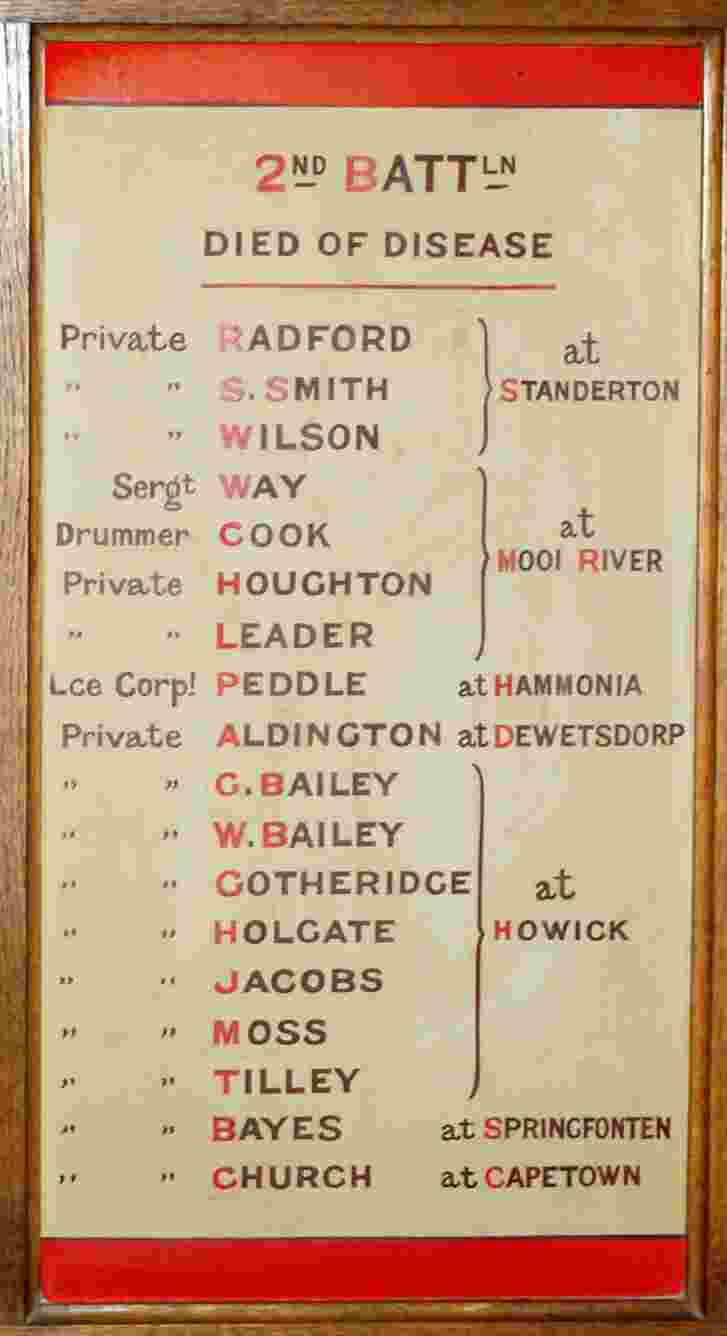 2ND BATTLN
DIED OF DISEASE
Private RADFORD
" " S. SMITH
" " WILSON
at
STANDERTON
Sergt WAY
Drummer COOK
Private HOUGHTON
" " LEADER
at
MOOI RIVER
Lce Corpl PEDDLE at HAMMONIA
Private ALDINGTON at DEWETSDORP
" " G. BAILEY
" " W. BAILEY
" " GOTHERIDGE
" " HOLGATE
" " JACOBS
" " MOSS
" " TILLEY
at
HOWICK
" " BAYES at SPRINGFONTEN
" " CHURCH at CAPETOWN